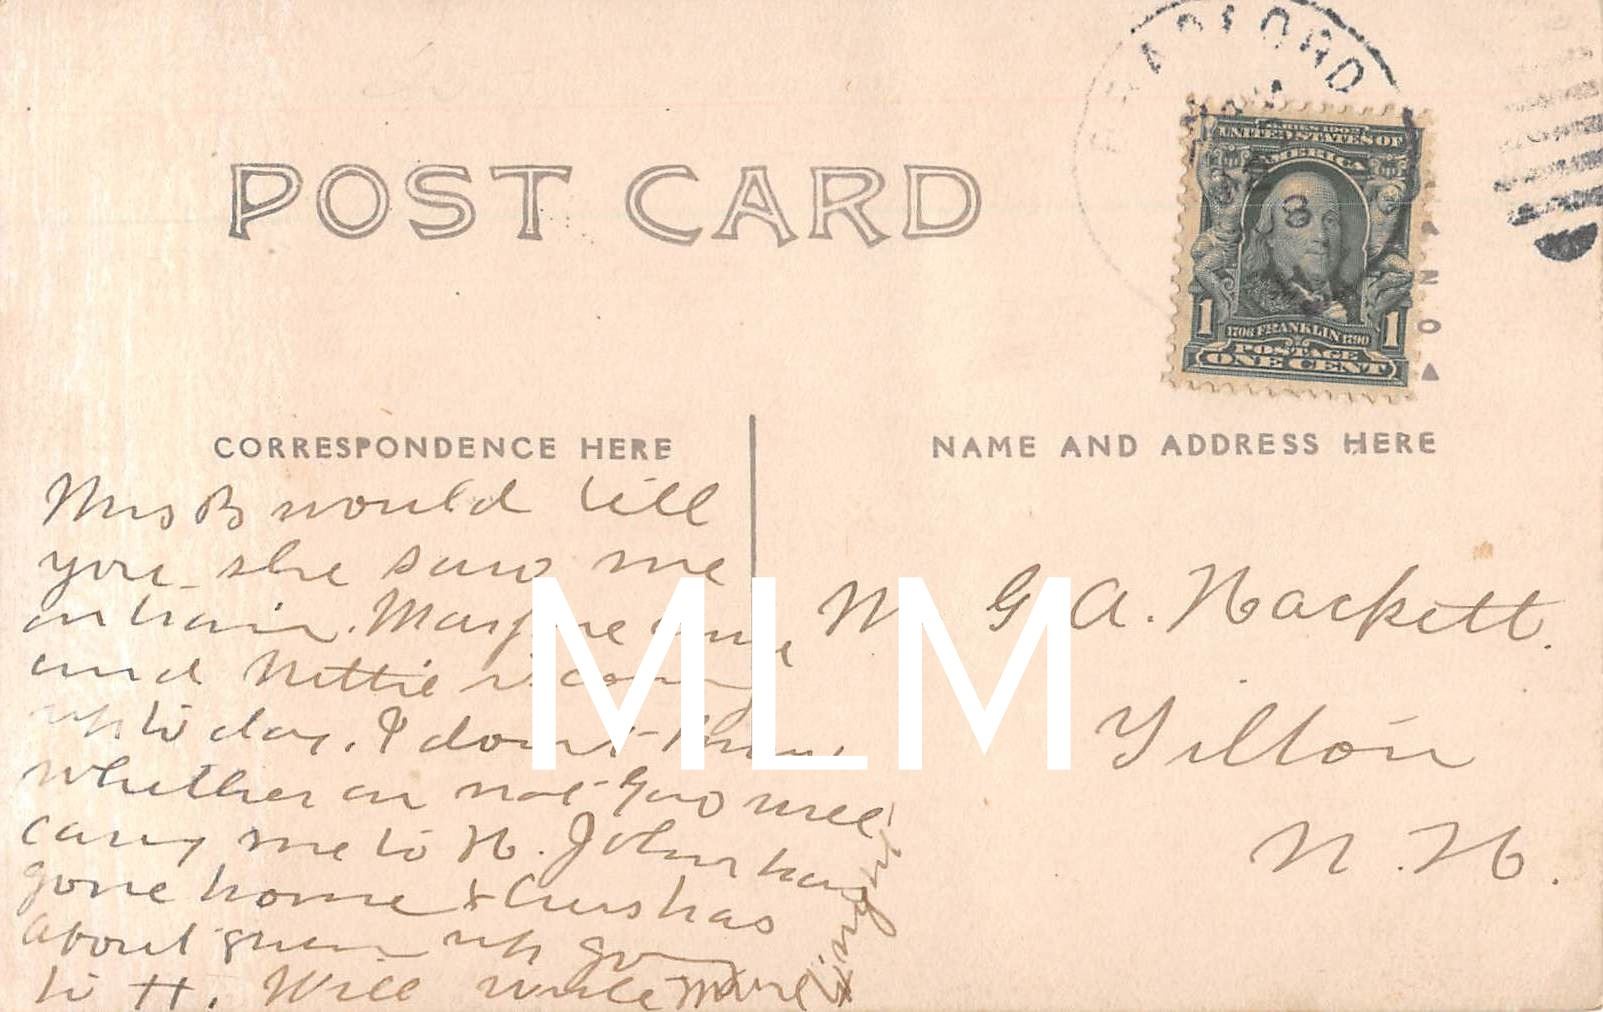 BRADFORD
SERIES 1902
UNITED STATES OF
AMERICA
8
1 1
1706 FRANKLIN 1790
POSTAGE
ONE CENT
POST CARD
CORRESPONDENCE HERE
NAME AND ADDRESS HERE
Mrs B would tell
you she saw me
on train.
and Nettie
up to day. I don't know
whether or not Geo will
carry me to H. Johns have
gone home & has
about given up going
to H. Will write more
G A. Hackett.
Tilton
N. H.
MLM